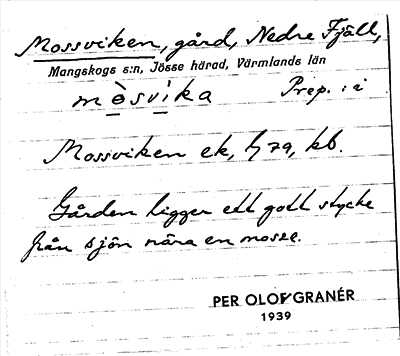 Mossviken, gård, Nedre Fjäll,
Mangskogs s:n, Jösse härad, Värmlands län
mòsvìka Prep.: i
Mossviken ek, kb.
Gården ligger ett gott stycke
från sjön nära en mosse.
PER OLOF GRANÉR
1939